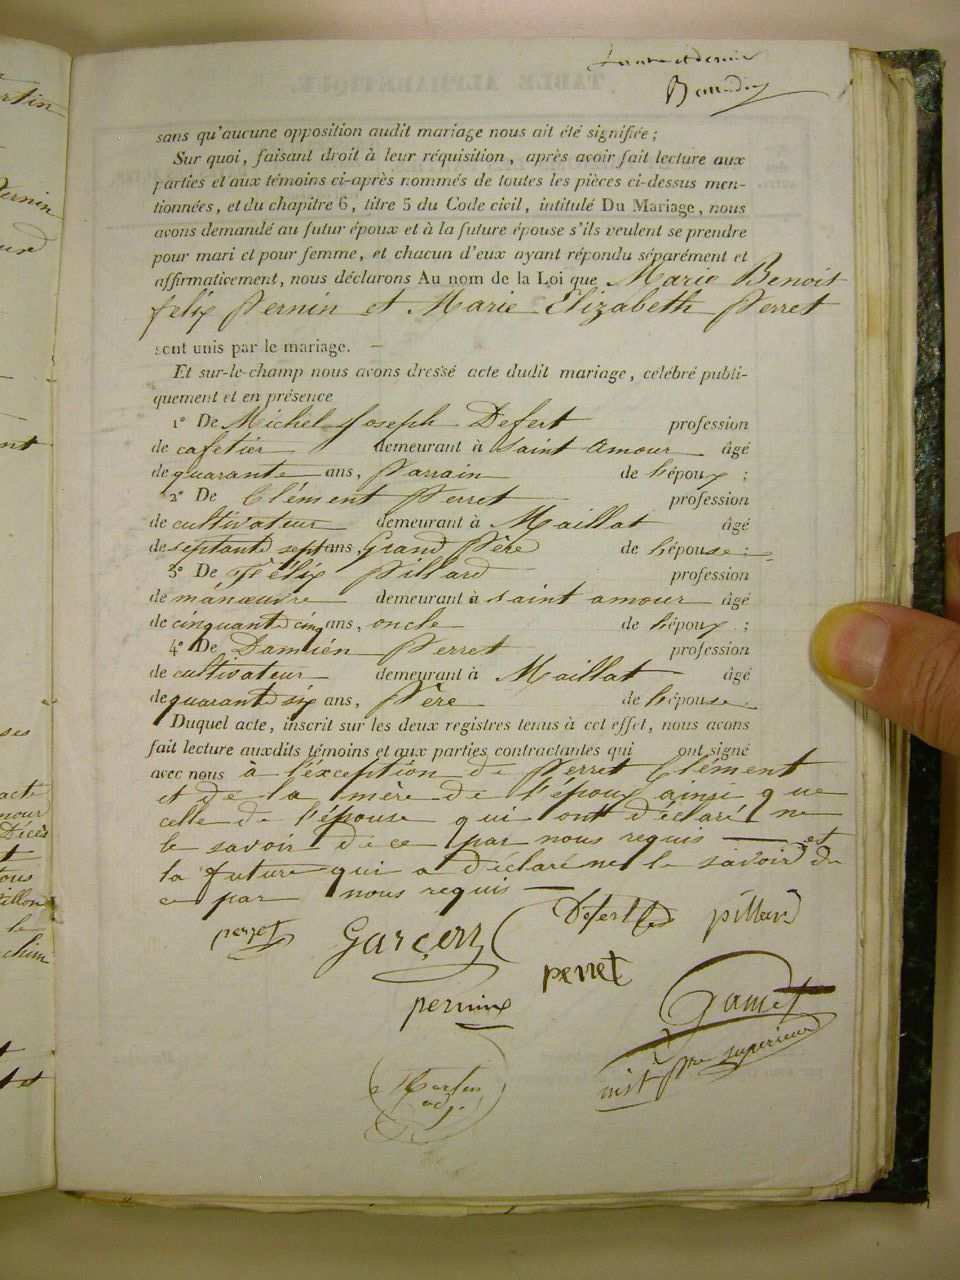 et dernier
TABLE ALPHABÉTIQUE.
sans qu'aucune opposition audit mariage nous ait été signifiée ;
Sur quoi, faisant droit à leur réquisition, après avoir fait lecture aux
parties et aux témoins ci-après nommés de toutes les pièces ci-dessus men-
tionnées, et du chapitre 6, titre 5 du Code civil, intitulé Du Mariage, nous
avons demandé au futur époux et à la future épouse s'ils veulent se prendre
pour mari et pour femme, et chacun d'eux ayant répondu séparément et
affirmativement, nous déclarons Au nom de la Loi que Marie Benoit
felix Pernin et Marie Elizabeth Perret
sont unis par le mariage. —
Et sur-le-champ nous avons dressé acte dudit mariage, célébré publi-
quement et en présence
1° De Michel Joseph Defert profession
de cafetier demeurant à saint amour âgé
de quarante ans, Parrain de l'époux ;
2° De Clément Perret profession
de cultivateur demeurant à Maillat âgé
de septante sept ans, Grand Père de l'épouse ;
3° De Félix Pillard profession
de manœuvre demeurant à saint amour âgé
de cinquante cinq ans, oncle de l'époux ;
4° De Damien Perret profession
de cultivateur demeurant à Maillat âgé
de quarante six ans, Père de l'épouse.
Duquel acte, inscrit sur les deux registres tenus à cet effet, nous avons
fait lecture auxdits témoins et aux parties contractantes qui ont signé
avec nous à l'éxception de Perret Clément
et de la mère de l'époux ainsi que
celle de l'épouse qui ont déclaré ne
le savoir de ce par nous requis — et
la future qui a déclaré ne le savoir de
ce par nous requis —
Defert pillard
perret Garçon
perret
pernin
Gamet
inst pre superieur
Martin
adj.